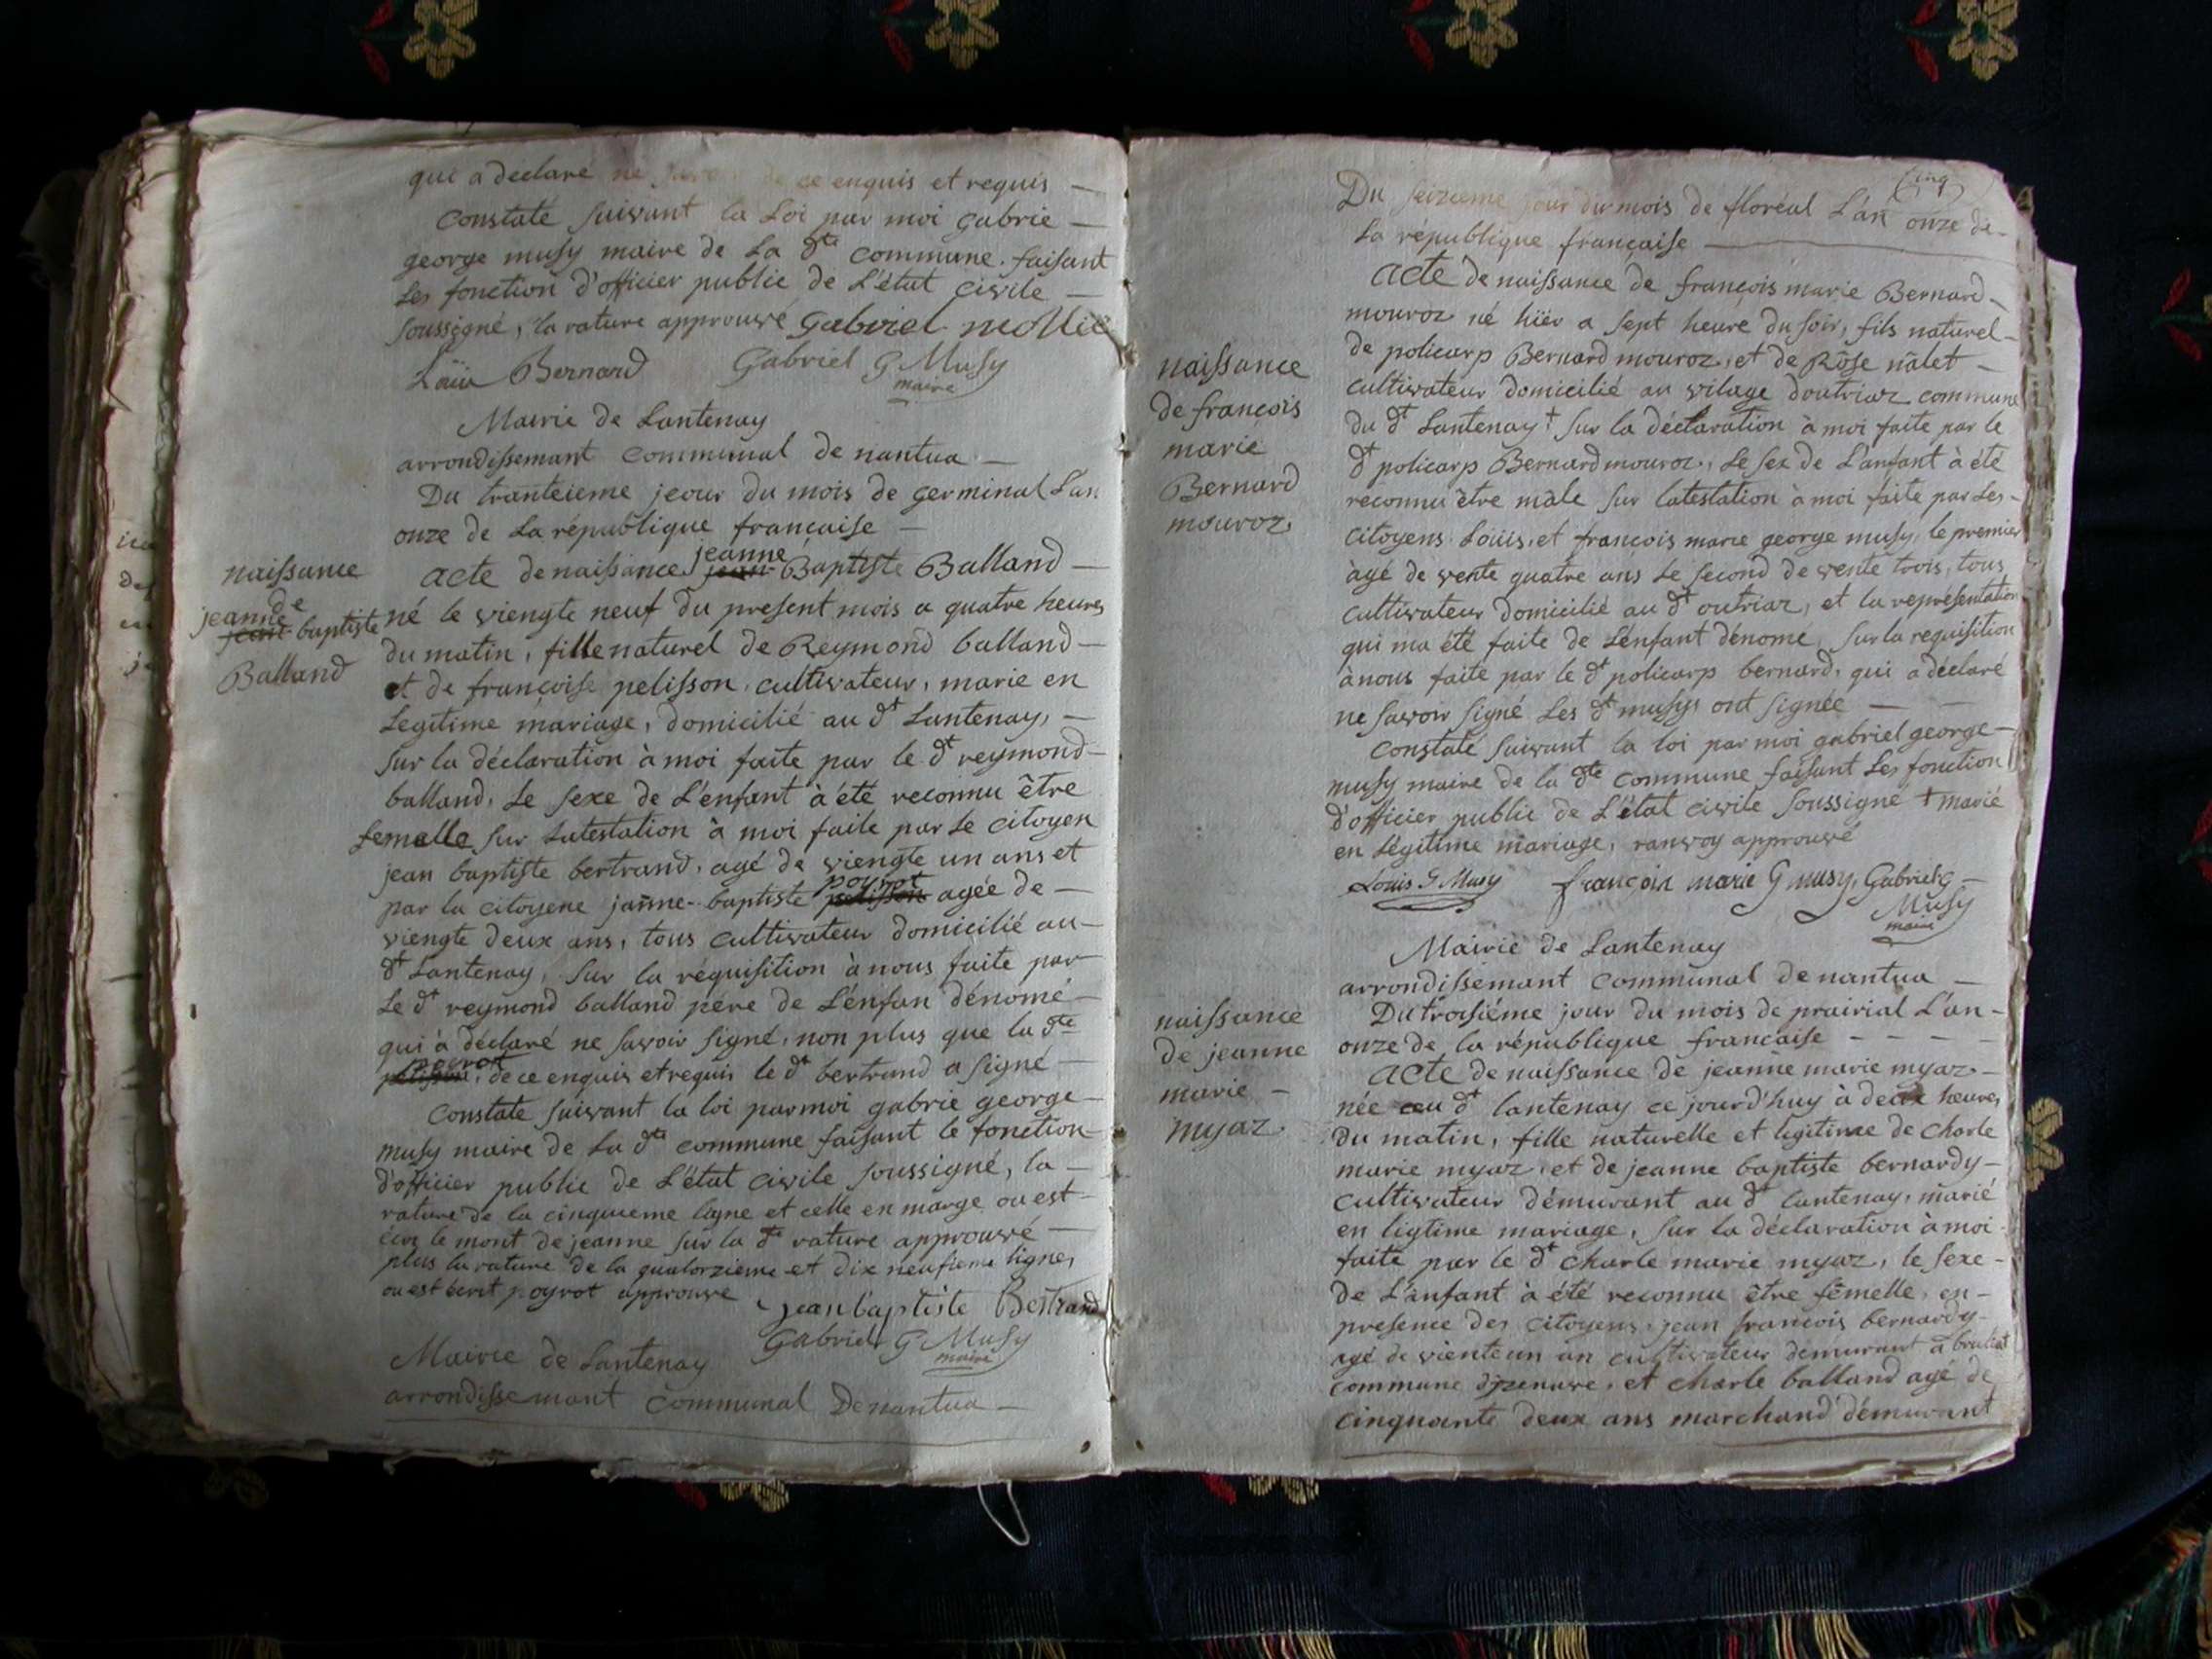 qui a déclaré ne de ce enquis et requis —
Constaté suivant la Loi par moi gabrie —
george musy maire de La dte commune. faisant
Les fonction d'officier public de L'état civile —
soussigné, la rature approuvé Gabriel
Bernard Gabriel G Musy
maire
Mairie de Lantenay
arrondissemant communal de nantua —
Du tranteieme jeour du mois de germinal L'an
onze de La république française —
naissance
de
jeanne
jean baptiste
Balland
acte de naissance jean jeanne Baptiste Balland —
né le viengte neuf du present mois a quatre heures
du matin, fille naturel de Reymond balland —
et de françoise pelisson, cultivateur, marie en
Legitime mariage, domicilié au dt Lantenay, —
sur la déclaration à moi faite par le dt reymond —
balland, Le sexe de L'enfant à été reconnu être
femelle sur Latestation à moi faite par Le citoyen
jean baptiste bertrand, agé de viengte un ans et
par la citoyene janne-baptiste pelisson poyrot agée de —
viengte deux ans, tous cultivateur domicilié au —
dt Lantenay, sur la réquisition à nous faite par
Le dt reymond balland pere de L'énfan dénomé —
qui à déclaré ne savoir signé, non plus que la dte
pelisson poyrot, de ce enquis et requis le dt bertrand a signé —
Constate suivant la loi par moi gabrie george —
musy maire de La dte commune faisant le fonction —
d'officier public de L'état civile soussigné, la —
rature de la cinquieme ligne et celle en marge ou est —
le mont de jeanne sur la dte rature approuvé —
plus la rature de la quatorzieme et dix neufieme ligne,
ou est écrit poyrot approuve
jean baptiste Bertrand
Gabriel G Musy
maire
Mairie de Lantenay
arrondissemant communal De nantua —
cinq
Du seizieme jour du mois de floréal L'an onze de —
La république française —
naissance
de françois
marie
Bernard
mouroz
acte de naissance de françois marie Bernard —
mouroz né hier a sept heure du soir, fils naturel —
de policarp Bernard mouroz, et de Rose nalet —
cultivateur domicilié au vilage doutriaz commune
du dt Lantenay † sur la déclaration à moi faite par le
dt policarp Bernard mouroz, Le sex de L'anfant à été
reconnu être mâle sur latestation à moi faite par Les —
citoyens Loüis, et françois marie george musy, le premier
àgé de vente quatre ans Le second de vente trois, tous
cultivateur domicilié au dt outriaz, et la representation
qui ma été faite de L'énfant dénomé, sur la requisition
à nous faite par le dt policarp bernard, qui a déclaré
ne savoir signé Les dt musys ont signée —
Constaté suivant la loi par moi gabriel george —
musy maire de la dte commune faisant Les fonction
d'officier public de L'état civile soussigné † marié
en Légitime mariage, ranvoy approuvé
Louis G Musy françois marie G musy, Gabriel G —
Musy
maire
Mairie de Lantenay
arrondissemant communal de nantua —
naissance
de jeanne
marie —
myaz
Du troisiéme jour du mois de prairial L'an —
onze de la république française - - - -
acte de naissance de jeanne marie myaz —
née au dt lantenay ce jourd'huy à deux heures
du matin, fille naturelle et ligitime de Charle
marie myaz, et de jeanne baptiste bernardy —
cultivateur démurant au dt lantenay, marié
en ligtime mariage, sur la déclaration à moi
faite par le dt Charle marie myaz, le sexe —
de L'anfant à été reconnu être fémelle, en —
presence des citoyens, jean françois bernardy —
agé de viente un an cultivateur démurant a
commune et Charle balland agé de
cinquante deux ans marchand démurant